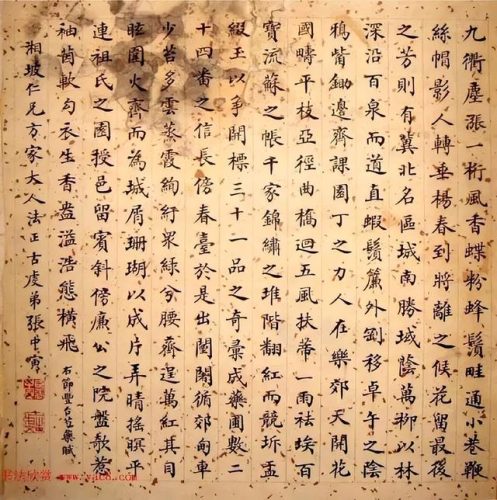 九衢塵漲一桁風香蝶粉蜂鬚畦通小巷鞭
絲帽影人轉垂楊春到將離之候花留最後
之芳則有冀北名區城南勝域陰萬柳以林
深沿百泉而道直蝦鬚簾外劉移卓午之陰
鴉觜鋤邊齊課園丁之力人在樂郊天開花
國疇平枝亞徑曲橋迴五風扶蒂一雨祛埃百
寶流蘇之帳千家錦繡之堆階翻紅而競坼盂
綴玉以爭開標三十一品之奇彙成藥圃數二
十四番之信長傍春臺於是出闉闍循郊甸車
少苔多雲蒸霞絢紆眾綠兮腰齊逞萬紅其目
眩圍火齊而為城屑珊瑚以成片弄晴搖暝平
連祖氏之園授邑留賓斜傍廉公之院盤歌惹
袖茵軟勾衣生香盎溢浩態橫飛 右節豐台芍藥賦
湘坡仁兄方家大人法正古虞弟張中寅
书法欣赏 www.yac8.com